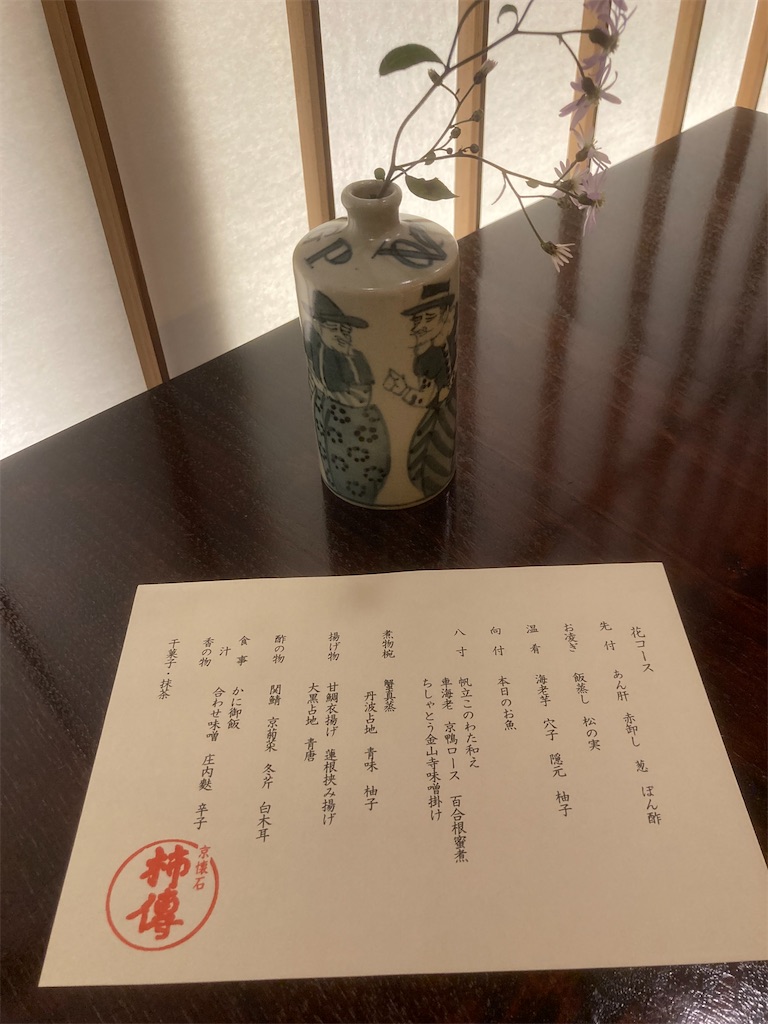 花コース
先付　あん肝　赤卸し　葱　ぽん酢
お凌ぎ　飯蒸し　松の実
温肴　海老芋　穴子　隠元　柚子
向付　本日のお魚
八寸　帆立このわた和え
車海老　京鴨ロース　百合根蜜煮
ちしゃとう金山寺味噌掛け
煮物椀　蟹真蒸
丹波占地　青味　柚子
揚げ物　甘鯛衣揚げ　蓮根挟み揚げ
大黒占地　青唐
酢の物　関鯖　京菊菜　冬瓜　白木耳
食事　かに御飯
汁　合わせ味噌　庄内麩　辛子
香の物
干菓子・抹茶
京懐石
柿傳